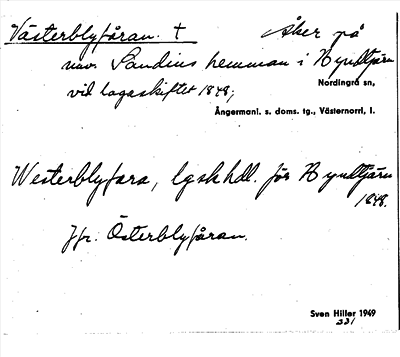 Västerblyfåran. † Åker på
nuv. Sandins hemman i Hyndtjärn
Nordingrå sn,
vid lagaskiftet 1848;
Ångermanl. s. doms. tg., Västernorrl, l.
Westerblyfara, lgskhdl. för Hyndtjärn
1848.
Jfr. Österblyfåran.
Sven Hiller 1949
331